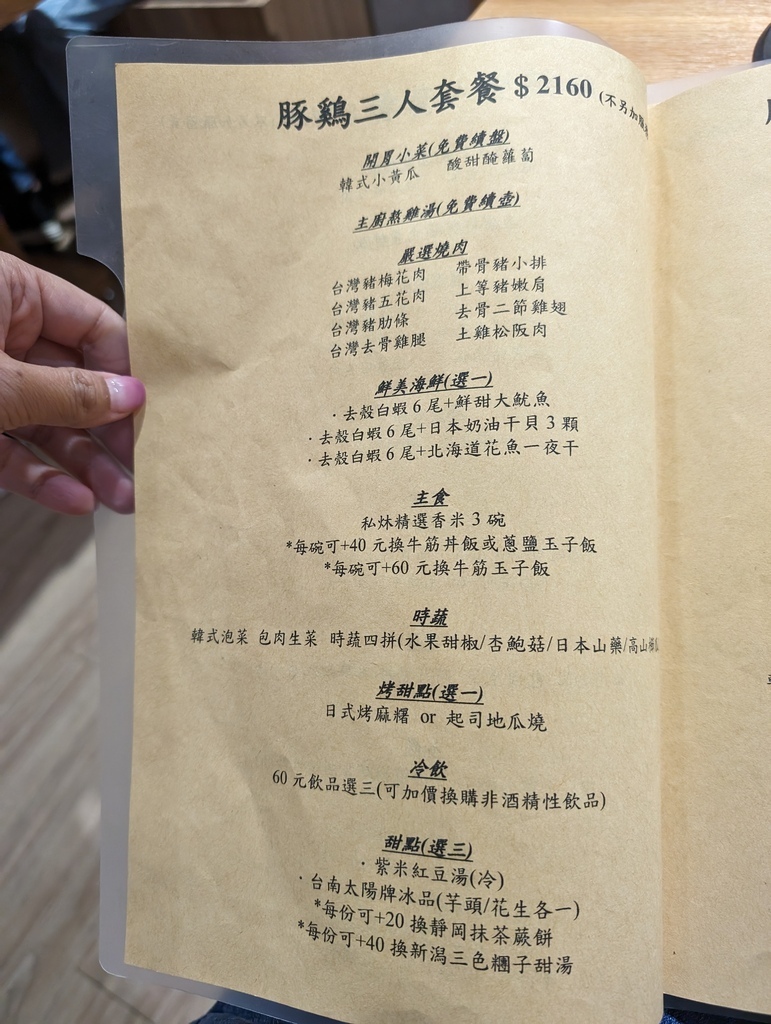 豚鷄三人套餐 $ 2160 (不另加
開胃小菜(免費續盤)
韓式小黃瓜 酸甜醃蘿蔔
主廚熬雞湯(免費續壺)
嚴選燒肉
台灣豬梅花肉 帶骨豬小排
台灣豬五花肉 上等豬嫩肩
台灣豬肋條 去骨二節雞翅
台灣去骨雞腿 土雞松阪肉
鮮美海鮮(選一)
·去殼白蝦 6 尾+鮮甜大魷魚
·去殼白蝦 6 尾+日本奶油干貝 3 顆
·去殼白蝦 6 尾+北海道花魚一夜干
主食
私炑精選香米 3 碗
*每碗可+40 元換牛筋丼飯或蔥鹽玉子飯
*每碗可+60 元換牛筋玉子飯
時蔬
韓式泡菜 包肉生菜 時蔬四拼(水果甜椒/杏鮑菇/日本山藥/高山
烤甜點(選一)
日式烤麻糬 or 起司地瓜燒
冷飲
60 元飲品選三(可加價換購非酒精性飲品)
甜點(選三)
·紫米紅豆湯(冷)
·台南太陽牌冰品(芋頭/花生各一)
*每份可+20 換靜岡抹茶蕨餅
*每份可+40 換新潟三色糰子甜湯